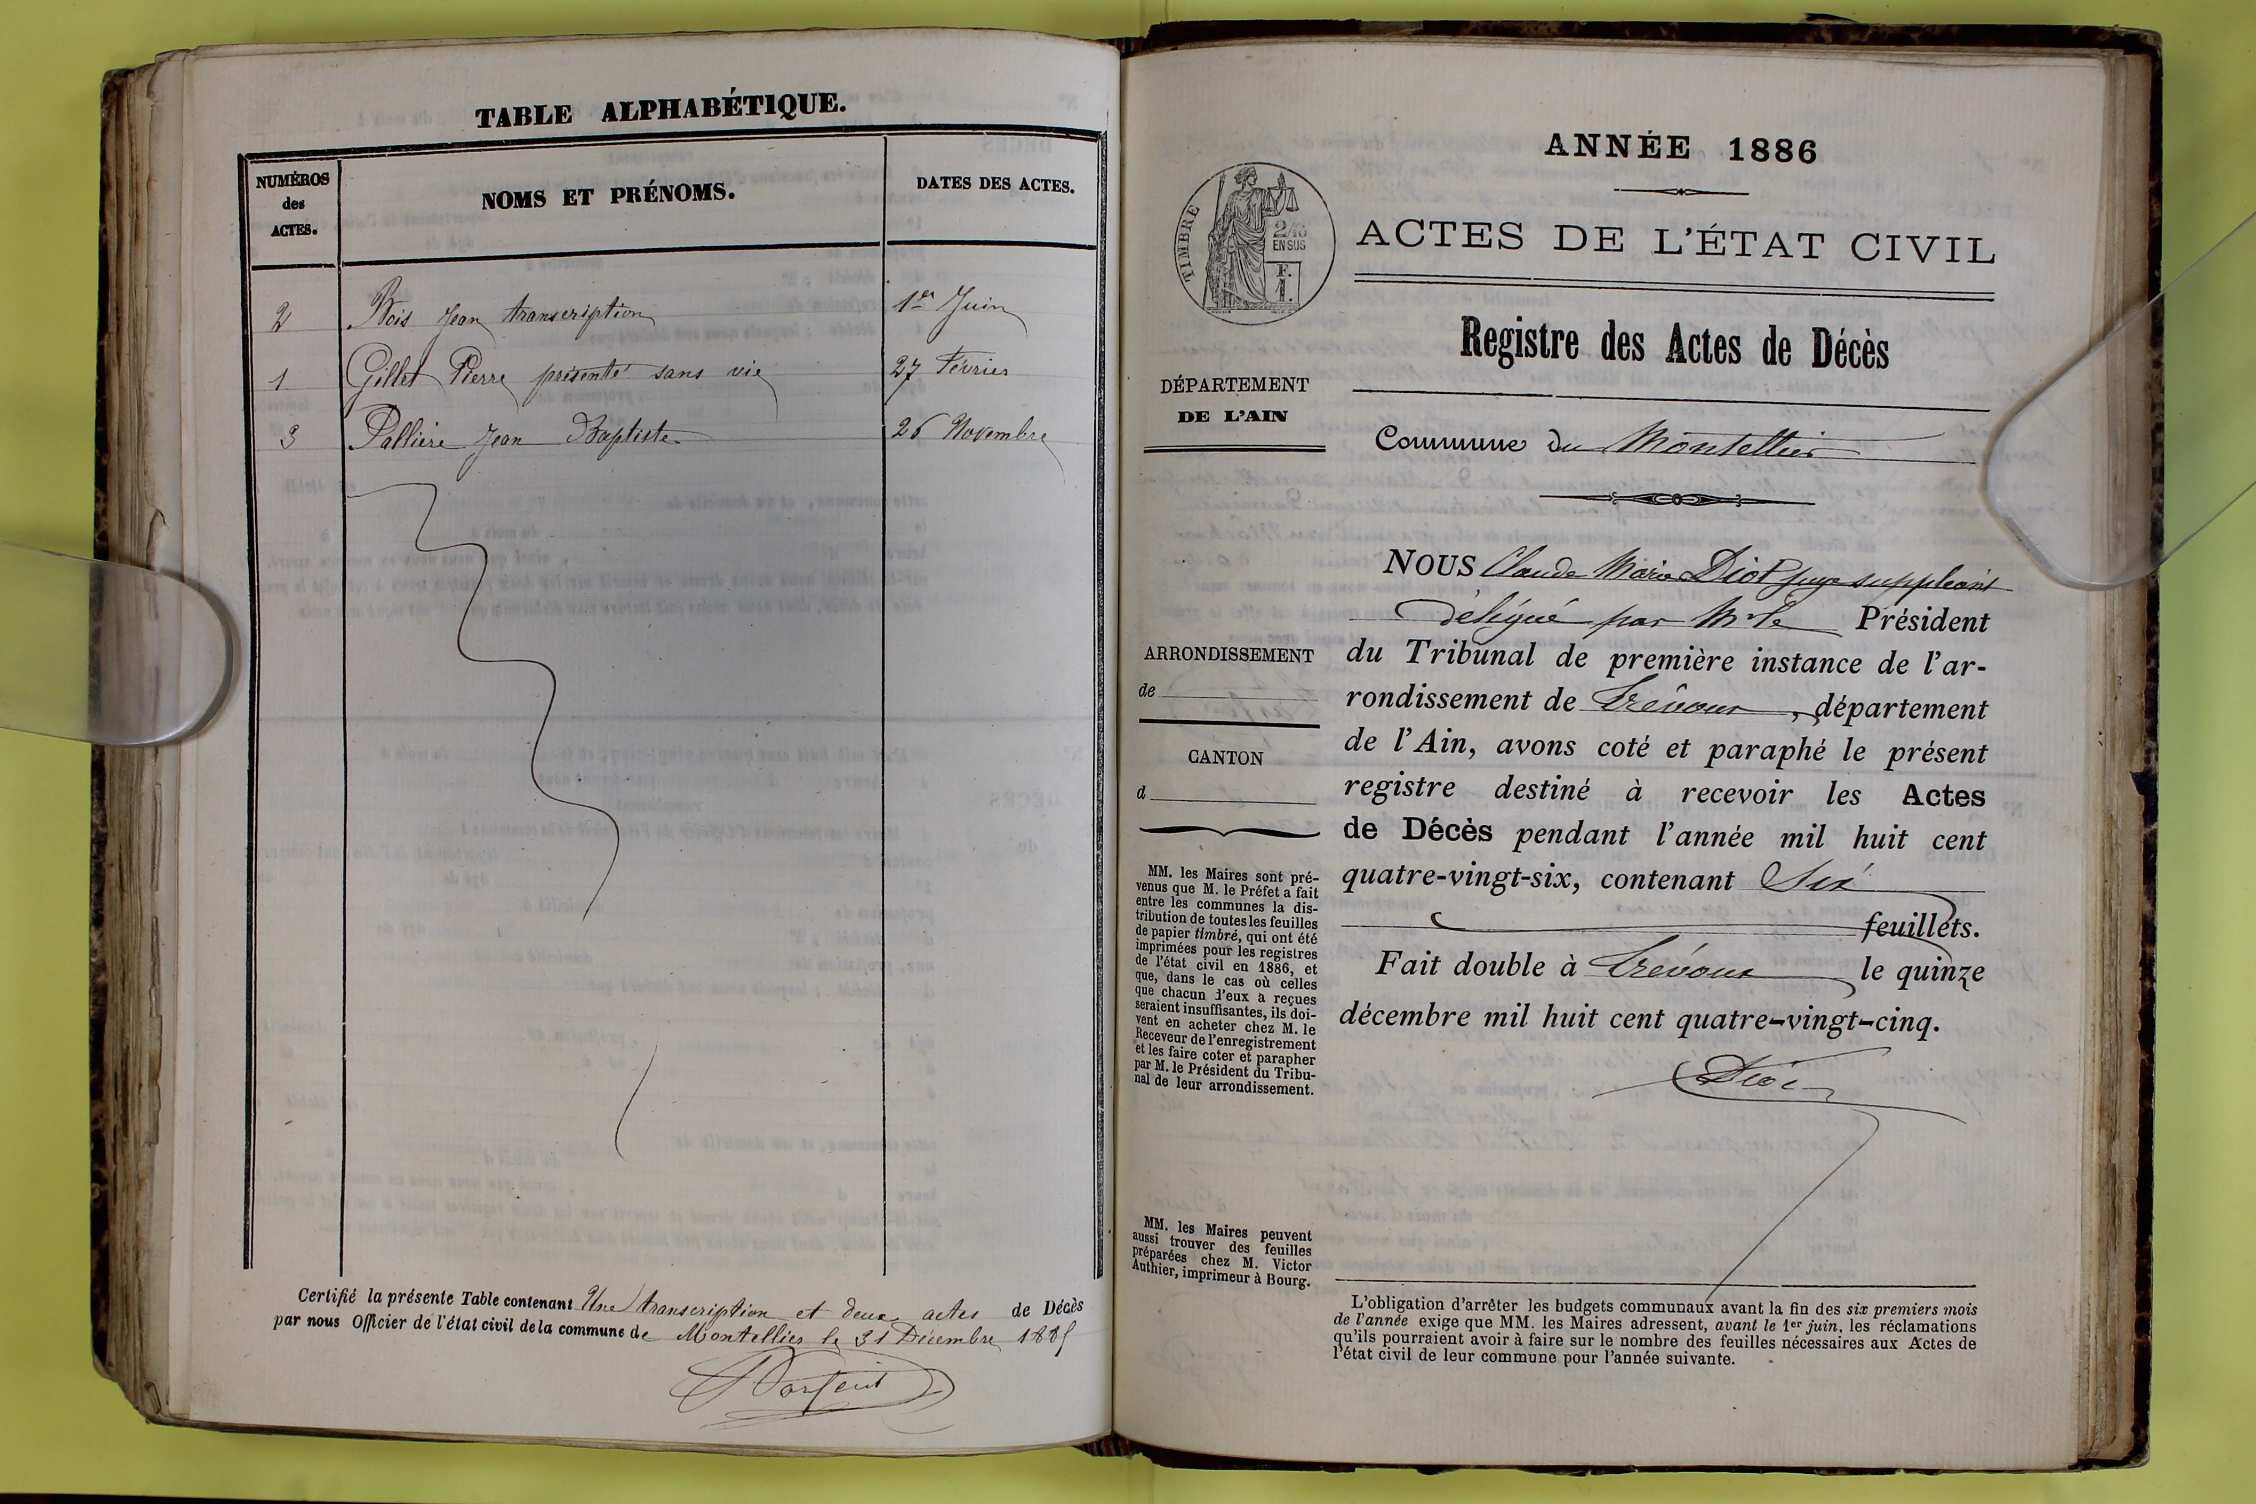 TABLE ALPHABÉTIQUE.
NUMÉROS
des
ACTES.
NOMS ET PRÉNOMS.
DATES DES ACTES.
2 Bois Jean transcription 1er Juin
1 Gillet Pierre présenté sans vie 27 Février
3 Pallière Jean Baptiste 26 Novembre
Certifié la présente Table contenant Une transcription et deux actes de Décès
par nous Officier de l'état civil de la commune de Montellier le 31 Décembre 1885
ANNÉE 1886
TIMBRE
2/10
EN SUS
F.
1.
ACTES DE L'ÉTAT CIVIL
Registre des Actes de Décès
DÉPARTEMENT
DE L'AIN
Commune du Montellier
NOUS Claude Marie Diot juge suppléant
délégué par Mr le Président
ARRONDISSEMENT
de
du Tribunal de première instance de l'ar-
rondissement de Trévoux, département
CANTON
d
de l'Ain, avons coté et paraphé le présent
registre destiné à recevoir les Actes
de Décès pendant l'année mil huit cent
quatre-vingt-six, contenant Six
feuillets.
Fait double à Trévoux le quinze
décembre mil huit cent quatre-vingt-cinq.
Diot
MM. les Maires sont pré-
venus que M. le Préfet a fait
entre les communes la dis-
tribution de toutes les feuilles
de papier timbré, qui ont été
imprimées pour les registres
de l'état civil en 1886, et
que, dans le cas où celles
que chacun d'eux a reçues
seraient insuffisantes, ils doi-
vent en acheter chez M. le
Receveur de l'enregistrement
et les faire coter et parapher
par M. le Président du Tribu-
nal de leur arrondissement.
MM. les Maires peuvent
aussi trouver des feuilles
préparées chez M. Victor
Authier, imprimeur à Bourg.
L'obligation d'arrêter les budgets communaux avant la fin des six premiers mois
de l'année exige que MM. les Maires adressent, avant le 1er juin, les réclamations
qu'ils pourraient avoir à faire sur le nombre des feuilles nécessaires aux Actes de
l'état civil de leur commune pour l'année suivante.